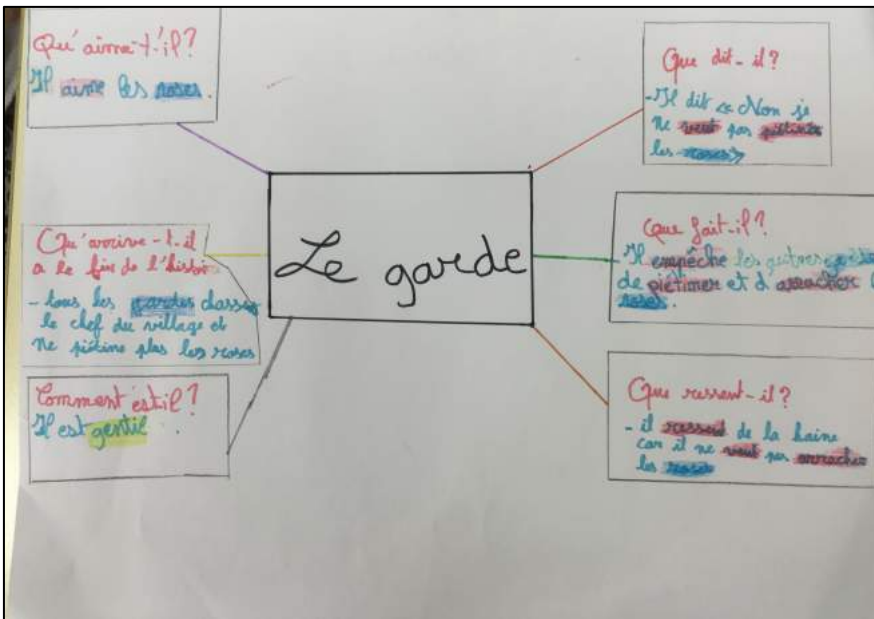 Qu'aime-t-'il?
Il aime les roses.
Qu'arrive-t-il
a le fin de l'histoire
- tous les gardes chasse
le chef du village et
ne piétine plus les roses
Comment est il?
Il est gentil
Le garde
Que dit-il?
- Il dit « Non je
ne veut pas piétiner
les roses»
Que fait-il?
Il empêche les autres
de piétimer et d'arracher
roses.
Que ressent-il?
- il ressent de la haine
car il ne veut pas arracher
les roses